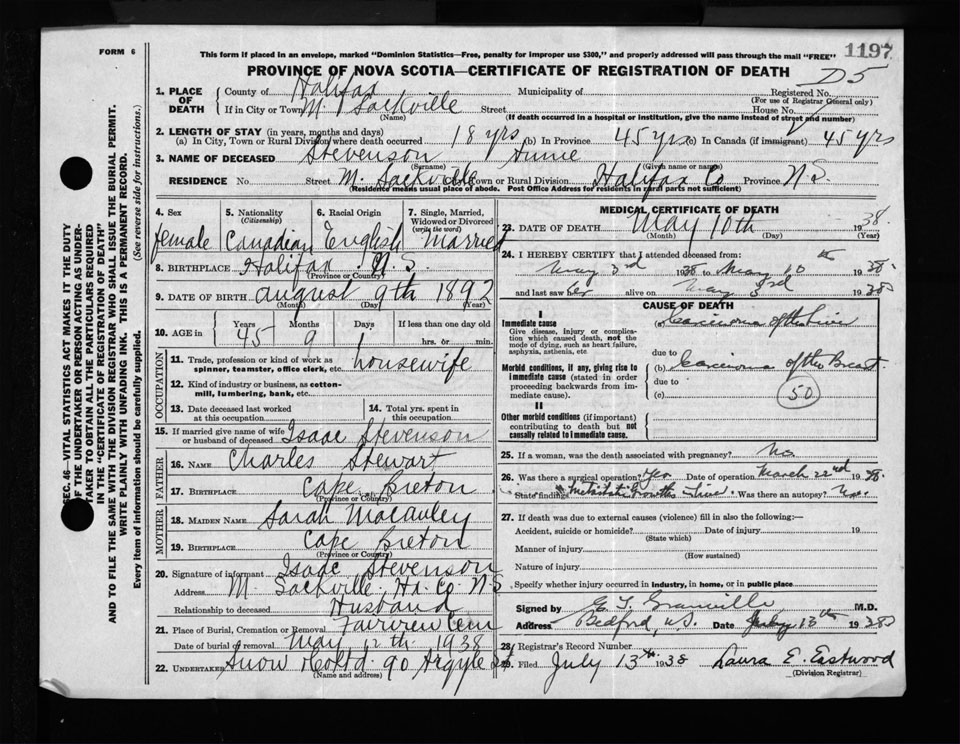 FORM 6
This form if placed in an envelope, marked "Dominion Statistics—Free, penalty for improper use $300," and properly addressed will pass through the mail "FREE"
1197
PROVINCE OF NOVA SCOTIA—CERTIFICATE OF REGISTRATION OF DEATH
D5
SEC. 46—VITAL STATISTICS ACT MAKES IT THE DUTY
OF THE UNDERTAKER OR PERSON ACTING AS UNDER-
TAKER TO OBTAIN ALL THE PARTICULARS REQUIRED
IN THE "CERTIFICATE OF REGISTRATION OF DEATH"
AND TO FILE THE SAME WITH THE DIVISION REGISTRAR WHO SHALL ISSUE THE BURIAL PERMIT.
WRITE PLAINLY WITH UNFADING INK. THIS IS A PERMANENT RECORD.
Every item of information should be carefully supplied. (See reverse side for instructions.)
1. PLACE OF DEATH County of Halifax Municipality of Registered No.
(For use of Registrar General only)
If in City or Town M. Sackville Street House No.
(Name) (If death occurred in a hospital or institution, give the name instead of street and number)
2. LENGTH OF STAY (in years, months and days)
(a) In City, Town or Rural Division where death occurred 18 yrs (b) In Province 45 yrs (c) In Canada (if immigrant) 45 yrs
3. NAME OF DECEASED Stevenson Annie
(Surname) (Given name or names)
RESIDENCE No. Street M. Sackville City, Town or Rural Division Halifax Co Province N.S.
(Residence means usual place of abode. Post Office Address for residents in rural parts not sufficient)
4. Sex 5. Nationality (Citizenship) 6. Racial Origin 7. Single, Married, Widowed or Divorced (write the word)
female Canadian English Married
8. BIRTHPLACE Halifax N.S.
(Province or Country)
9. DATE OF BIRTH August 9th 1892
(Month) (Day) (Year)
10. AGE in Years Months Days If less than one day old
45 9 hrs. or min.
OCCUPATION
11. Trade, profession or kind of work as spinner, teamster, office clerk, etc. housewife
12. Kind of industry or business, as cotton-mill, lumbering, bank, etc.
13. Date deceased last worked at this occupation
14. Total yrs. spent in this occupation
15. If married give name of wife or husband of deceased Isaac Stevenson
FATHER
16. NAME Charles Stewart
17. BIRTHPLACE Cape Breton
(Province or Country)
MOTHER
18. MAIDEN NAME Sarah Macauley
19. BIRTHPLACE Cape Breton
(Province or Country)
20. Signature of informant Isaac Stevenson
Address M. Sackville Hx. Co. N.S.
Relationship to deceased Husband
21. Place of Burial, Cremation or Removal Fairview Cem
Date of burial or removal May 12th 1938
22. UNDERTAKER Snow & Co Ltd. 90 Argyle St
(Name and address)
MEDICAL CERTIFICATE OF DEATH
23. DATE OF DEATH May 10th 1938
(Month) (Day) (Year)
24. I HEREBY CERTIFY that I attended deceased from:
May 3rd 1938 to May 10th 1938
and last saw her alive on May 3rd 1938
CAUSE OF DEATH
I
Immediate cause (a) Carcinoma of the Liver
Give disease, injury or complication which caused death, not the mode of dying, such as heart failure, asphyxia, asthenia, etc.
due to
Morbid conditions, if any, giving rise to immediate cause (stated in order proceeding backwards from immediate cause). (b) Carcinoma of the Breast
due to
(c)
50
II
Other morbid conditions (if important) contributing to death but not causally related to immediate cause.
25. If a woman, was the death associated with pregnancy? No
26. Was there a surgical operation? Yes Date of operation March 22nd 1938
State findings Metastatic Growths Liver. Was there an autopsy? No.
27. If death was due to external causes (violence) fill in also the following:—
Accident, suicide or homicide? Date of injury 19
(State which)
Manner of injury
(How sustained)
Nature of injury
Specify whether injury occurred in industry, in home, or in public place
Signed by E. T. Granville M.D.
Address Bedford, N.S. Date July 13th 1938
28. Registrar's Record Number
29. Filed July 13th 1938 Laura E. Eastwood
(Division Registrar)